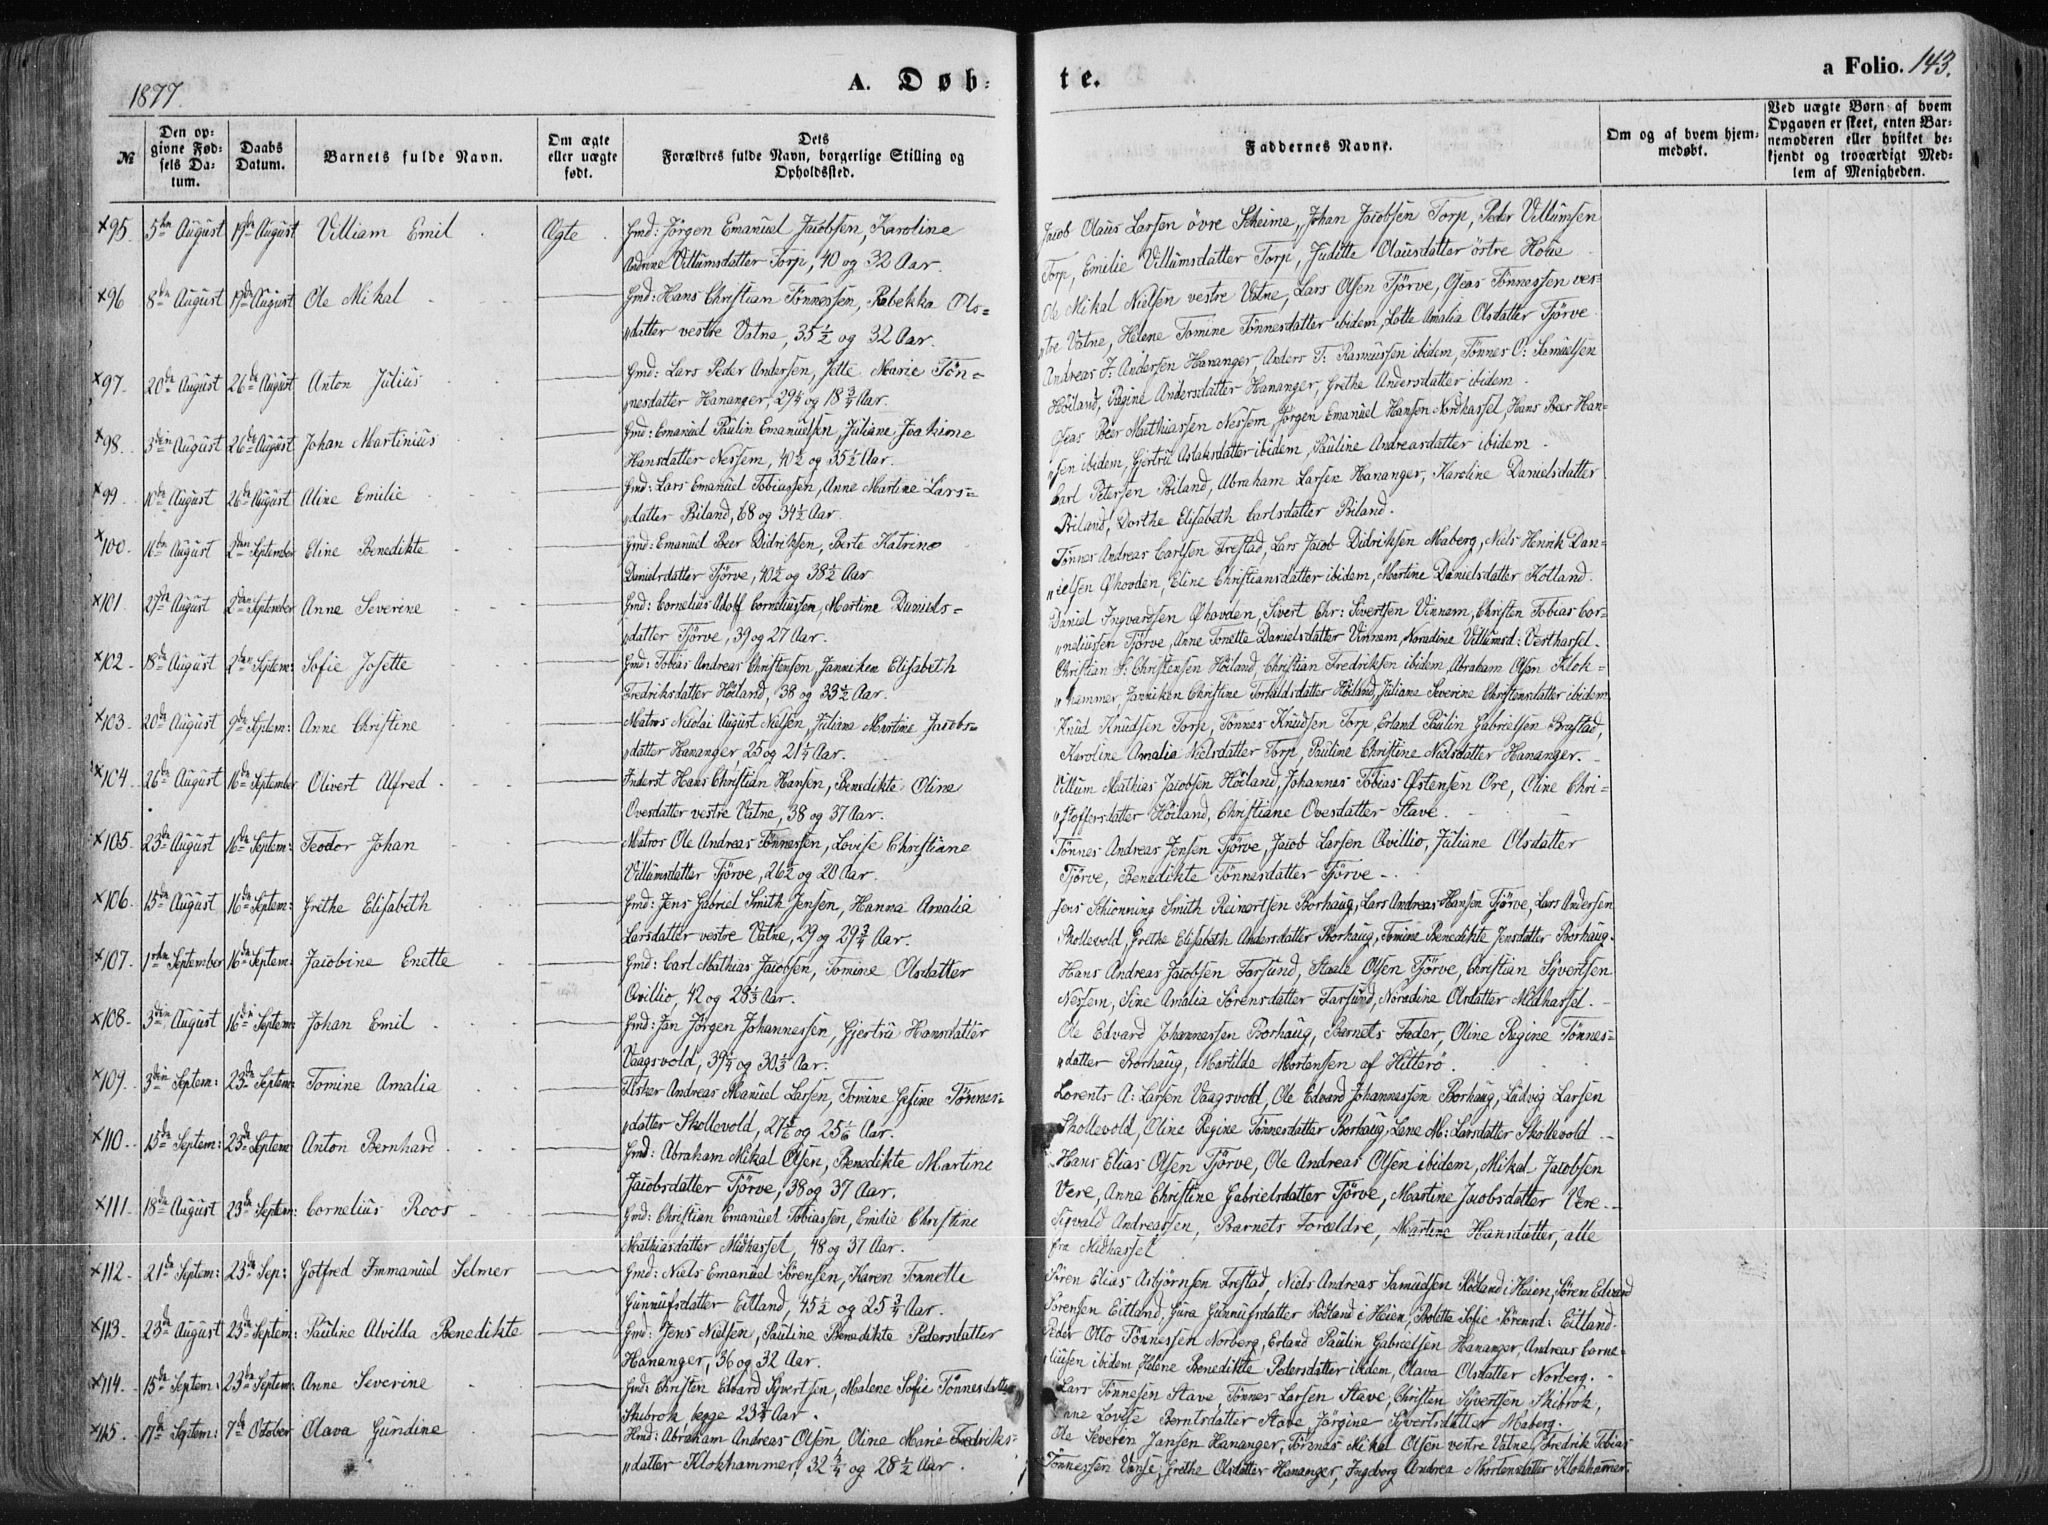 1877.
A. Døb-
te.
a Folio. 143.
№
Den op-
givne Fød-
sels Da-
tum.
Daabs
Datum.
Barnets fulde Navn.
Om ægte
eller uægte
født.
Dets
Forældres fulde Navn, borgerlige Stilling og
Opholdssted.
Faddernes Navne.
Om og af hvem hjem-
medøbt.
Ved uægte Børn af hvem
Opgaven er skeet, enten Bar-
nemoderen eller hvilket be-
kjendt og troværdigt Med-
lem af Menigheden.
×95 5te August 19de August Villiam Emil Ægte Gmd: Jörgen Emanuel Jacobsen, Karoline
Andrine Villumsdatter Torp, 40 og 32 Aar.
Jacob Olaus Larsen övre Skeime, Johan Jacobsen Torp, Peder Villumsen
Torp, Emilie Villumsdatter Torp, Juditte Olausdatter östre Houe
×96 8de August 19de August Ole Mikal Gmd: Hans Christian Tönnessen, Rebekka Ols=
"datter vestre Vatne, 35½ og 32 Aar.
Ole Mikal Nielsen vestre Vatne, Lars Olsen Tjörve, Oseas Tönnessen ves=
"tre Vatne, Helene Tomine Tönnesdatter ibidem, Lotte Amalia Olsdatter Tjörve
×97. 20de August 26de August Anton Julius Gmd: Lars Peder Andersen, Jette Marie Tön=
"nesdatter Hananger, 29¼ og 18¾ Aar.
Andreas F. Andersen Hananger, Anders T. Rasmussen ibidem, Tönnes O: Samuelsen
Höiland, Regine Andersdatter Hananger, Grethe Andersdatter ibidem.
×98. 3die August 26de August Johan Martinius Gmd: Emanuel Paulin Emanuelsen, Juliane Joakime
Hansdatter Nessem, 40½ og 35½ Aar.
Oseas Beer Mathiassen Nessem, Jörgen Emanuel Hansen Nordhassel, Hans Beer Han=
"sen ibidem, Gjertru Aslaksdatter ibidem, Pauline Andreasdatter ibidem
×99. 10de August 26de August Aline Emilie Gmd: Lars Emanuel Tobiassen, Anne Martine Lars=
"datter Biland, 68 og 34½ Aar.
Carl Petersen Biland, Abraham Larsen Hananger, Karoline Danielsdatter
Biland, Dorthe Elisabeth Carlsdatter Biland.
×100. 16de August 2den September Eline Benedikte Gmd: Emanuel Beer Didriksen, Berte Katrine
Danielsdatter Tjörve, 40½ og 38½ Aar.
Tönnes Andreas Carlsen Frestad, Lars Jacob Didriksen Maberg, Niels Henrik Dan=
"ielsen Ohovden, Eline Christiansdatter ibidem, Martine Danielsdatter Kolland.
×101 27de August 2den September Anne Severine Gmd: Cornelius Adolf Corneliussen, Martine Daniels=
"datter Tjörve, 39 og 27 Aar.
Daniel Ingvartsen Ohovden, Sivert Chr: Sivertsen Vinnem, Christen Tobias Cor=
"neliussen Tjörve, Anne Tonette Danielsdatter Vinnem, Noradine Villumsd: Vesthassel.
×102 18de August 2den Septem: Sofie Josette Gmd: Tobias Andreas Christensen, Janniken Elisabeth
Fredriksdatter Höiland, 38 og 33½ Aar.
Christian S. Christensen Höiland, Christian Fredriksen ibidem, Abraham Olsen Klok=
"hammer, Janniken Christine Torkildsdatter Höiland, Juliane Severine Christensdatter ibidem
×103. 20de August 9de Septem: Anne Christine Matros Nicolai August Nielsen, Juliane Martine Jacobs=
"datter Hananger 25 og 21¼ Aar.
Knud Knudsen Torp, Tönnes Knudsen Torp, Erland Paulin Gabrielsen Brastad,
Karoline Amalia Nielsdatter Torp, Pauline Christine Nielsdatter Hananger.
×104. 26de August 16de September Olivert Alfred Inderst Hans Christian Hansen, Benedikte Oline
Ovesdatter vestre Vatne, 38 og 37 Aar.
Villum Mathias Jacobsen Höiland, Johannes Tobias Östensen Ore, Oline Chri=
"stoffersdatter Höiland, Christiane Ovesdatter Stave.
×105. 23de August 16de Septem: Teodor Johan Matros Ole Andreas Tönnessen, Lovise Christiane
Villumsdatter Tjörve, 26½ og 20 Aar.
Tönnes Andreas Jensen Tjörve, Jacob Larsen Qvillio, Juliane Olsdatter
Tjörve, Benedikte Tönnesdatter Tjörve
×106. 15de August 16de Septem: Grethe Elisabeth Gmd: Jens Gabriel Smith Jensen, Hanna Amalia
Larsdatter vestre Vatne, 29 og 29¾ Aar.
Jens Schionning Smith Reinertsen Borhaug, Lars Andreas Hansen Tjörve, Lars Andersen
Skollevold, Grethe Elisabeth Andersdatter Borhaug, Tomine Benedikte Jensdatter Borhaug.
×107. 1ste September 16de Septem: Jacobine Enette Gmd: Carl Mathias Jacobsen, Tomine Olsdatter
Qvillio, 42 og 28⅓ Aar.
Hans Andreas Jacobsen Farsund, Staale Olsen Tjörve, Christian Syvertsen
Nessem, Sine Amalia Sörensdatter Farsund, Noradine Olsdatter Midhassel.
×108. 3die August 16de Septem: Johan Emil Gmd: Jan Jörgen Johannessen, Gjertru Hansdatter
Vaagsvold, 39¼ og 30⅓ Aar.
Ole Edvard Johannessen Borhaug, Barnets Fader, Oline Regine Tönnes=
"datter Borhaug, Martilde Mortensen af Hitterö.
×109. 3die Septem: 23de Septem: Tomine Amalia Fisker Andreas Manuel Larsen, Tomine Gesine Tönnes=
"datter Skollevold, 27⅚ og 25⅙ Aar.
Lorents A: Larsen Vaagsvold, Ole Edvard Johannessen Borhaug, Ludvig Larsen
Skollevold, Oline Regine Tönnesdatter Borhaug, Lene M: Larsdatter Skollevold.
×110. 15de Septem: 23de Septem: Anton Bernhard Gmd: Abraham Mikal Olsen, Benedikte Martine
Jacobsdatter Tjörve, 38 og 37 Aar.
Hans Elias Olsen Tjörve, Ole Andreas Olsen ibidem, Mikal Jacobsen
Vere, Anne Christine Gabrielsdatter Tjörve, Martine Jacobsdatter Vere.
×111. 18de August 23de Septem: Cornelius Roos Gmd: Christian Emanuel Tobiassen, Emilie Christine
Mathiasdatter Midhassel, 48 og 37 Aar.
Sigvald Andreassen, Barnets Forældre, Martine Hansdatter, alle
fra Midhassel
×112. 21de Septem: 23de Sep: Gotfred Immanuel Selmer Gmd: Niels Emanuel Sörensen, Karen Tonnette
Gunnufsdatter Eitland, 45½ og 25¾ Aar.
Sören Elias Asbjörnsen Frestad, Niels Andreas Samuelsen Rödland i Heien, Sören Edvard
Sörensen Eitland, Gura Gunnufsdatter Rödland i Heien, Boletta Sofie Sörensd: Eitland.
×113. 23de August 23de Septem: Pauline Alvilda Benedikte Gmd: Jens Nielsen, Pauline Benedikte Pedersdatter
Hananger, 36 og 32 Aar.
Peder Otto Tönnessen Norberg, Erland Paulin Gabrielsen Hananger, Andreas Corne=
"liussen ibidem, Helene Benedikte Pedersdatter ibidem, Olava Olsdatter Norberg.
×114. 15de Septem: 23de Septem: Anne Severine Gmd: Christen Edvard Syvertsen, Malene Sofie Tönnesdatter
Skibrok begge 23¾ Aar.
Lars Tönnesen Stave, Tönnes Larsen Stave, Christen Syvertsen Skibrok,
Anne Lovise Berntsdatter Stave Jörgine Syvertsdatter Maberg.
×115. 17de Septem: 7de October Olava Gundine Hmd: Abraham Andreas Olsen Oline Marie Fredriks=
"datter Klokhammer, 32¾ og 28½ Aar.
Ole Severin Jansen Hananger, Tönnes Mikal Olsen vestre Vatne, Fredrik Tobias
Tönnessen Vanse, Grethe Olsdatter Hananger, Ingeborg Andrea Mortensdatter Klokhammer.